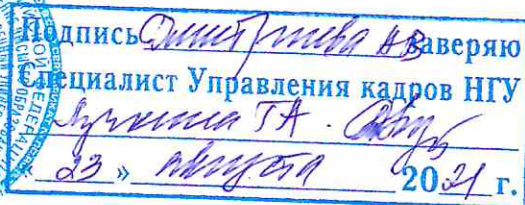 Подпись Дмитриева А.В. заверяю
Специалист Управления кадров НГУ
« 23 » августа 2021 г.